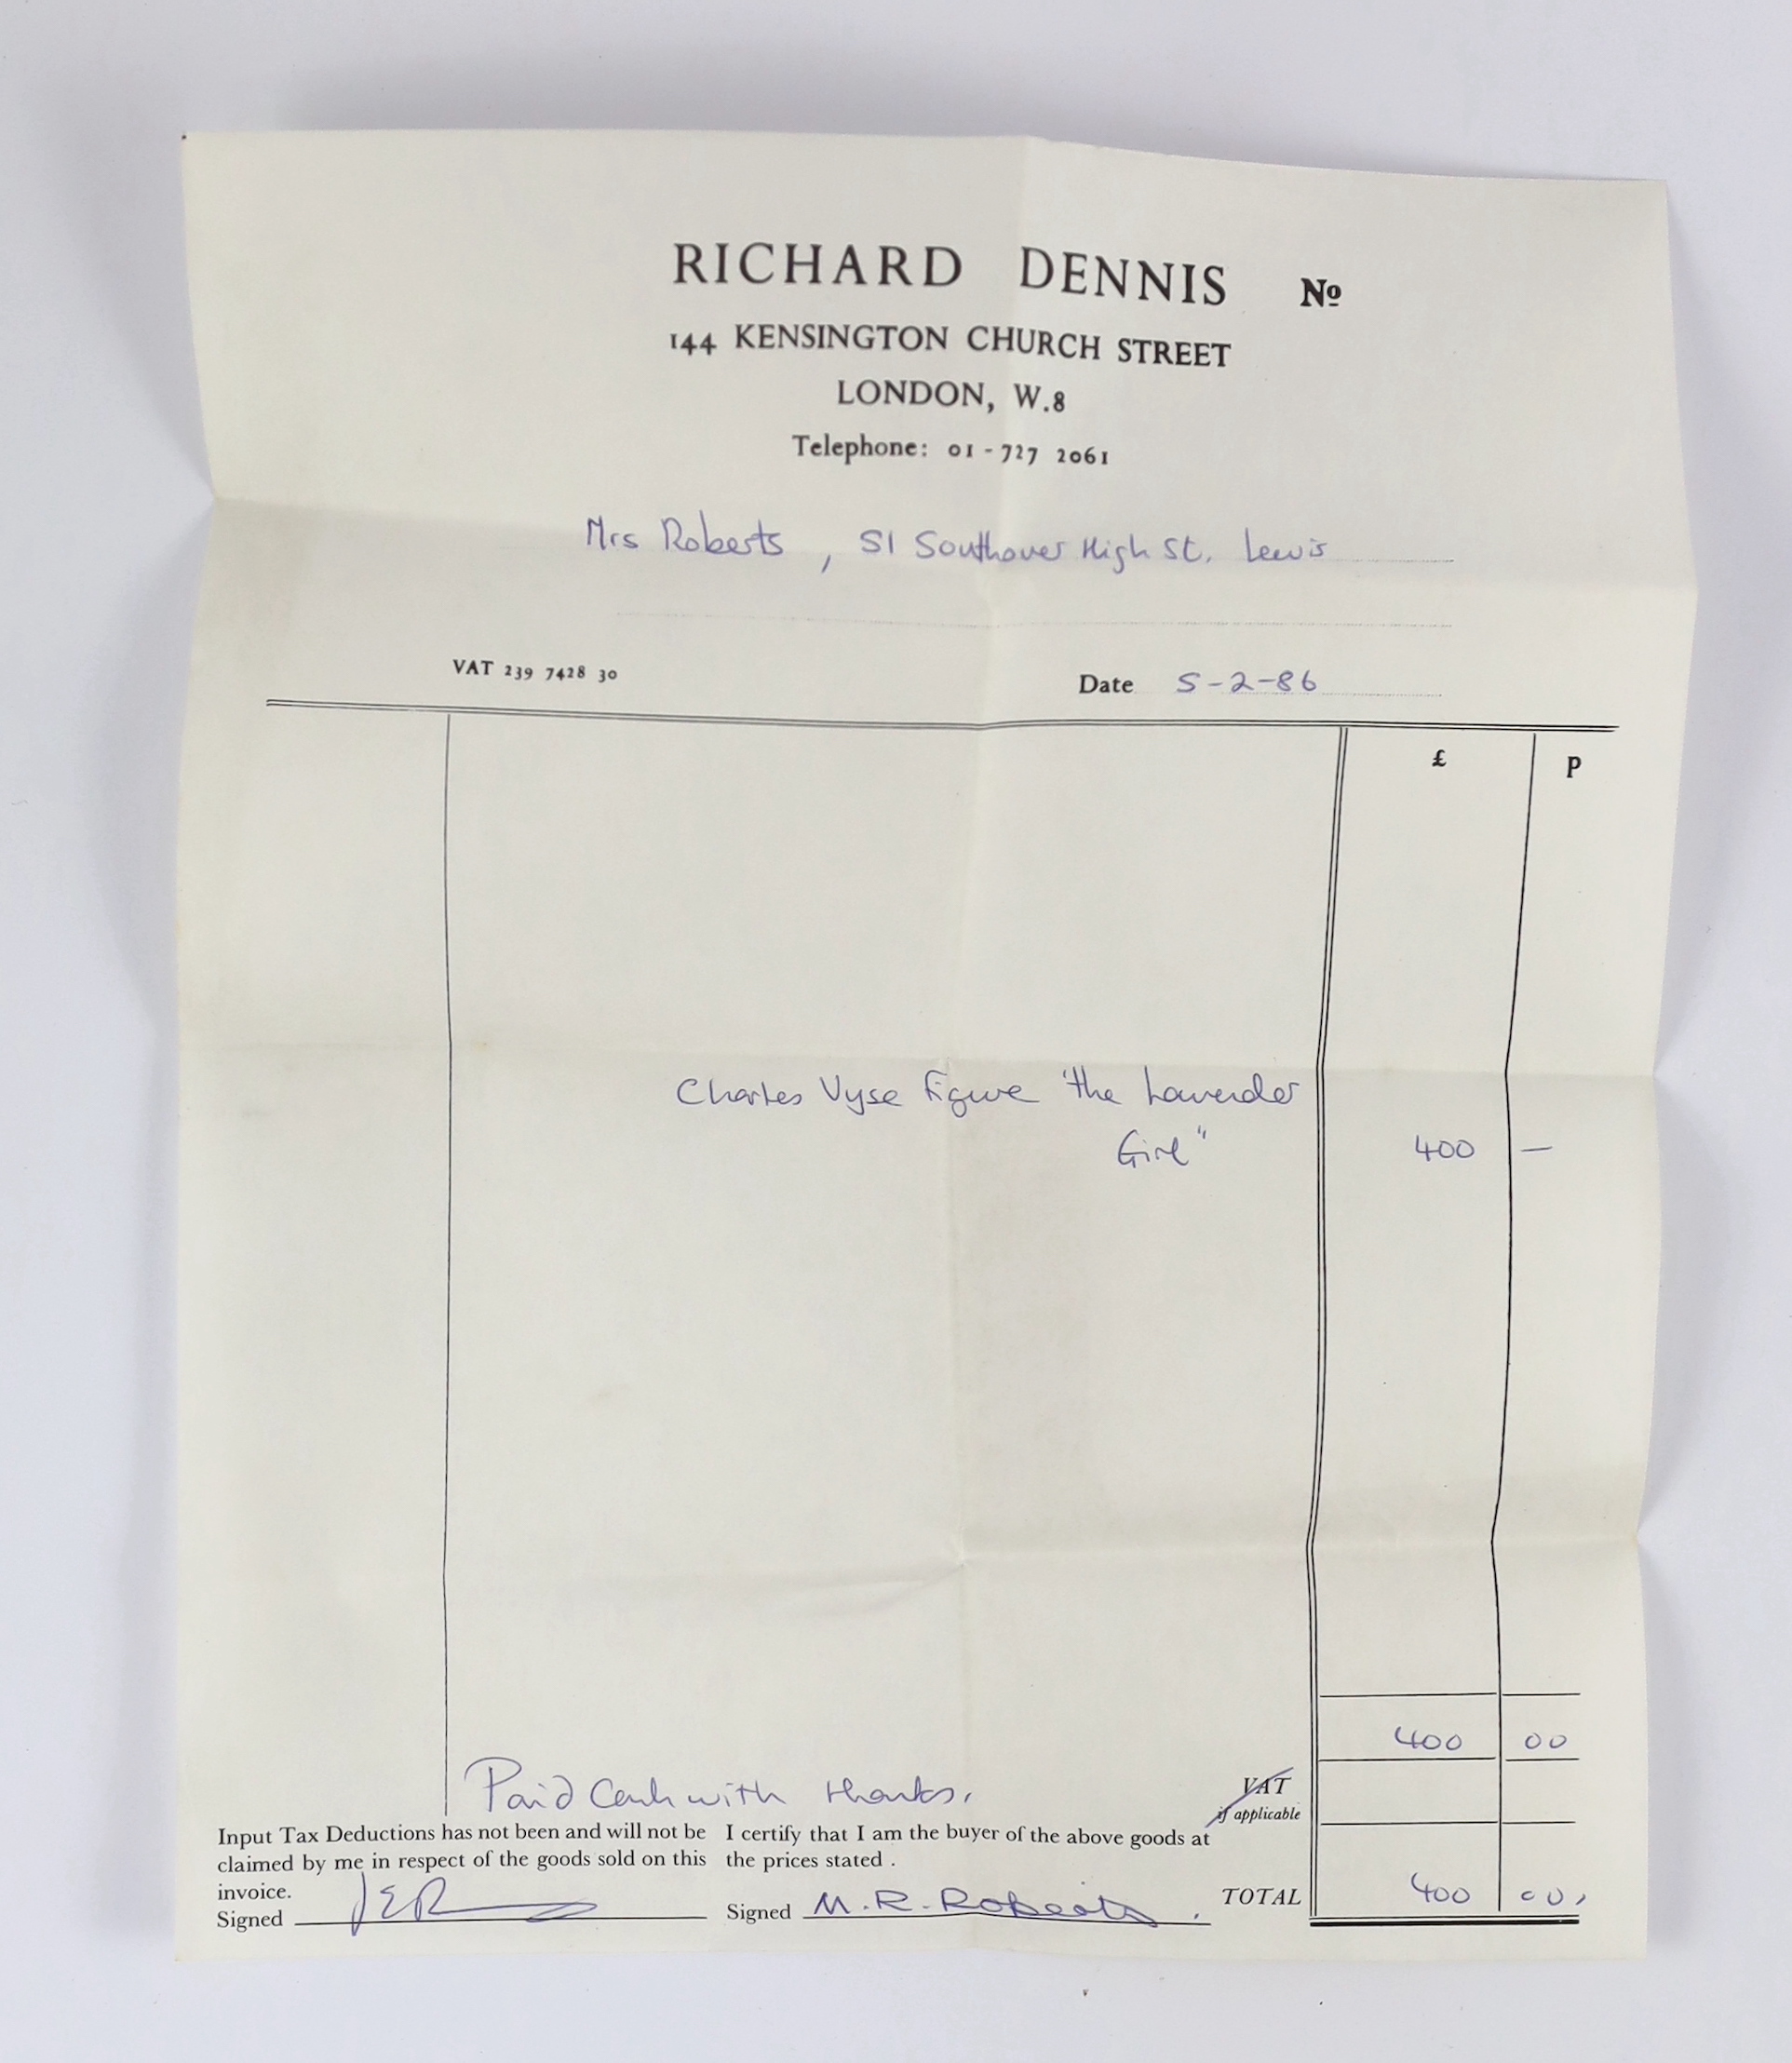 RICHARD DENNIS Nº
144 KENSINGTON CHURCH STREET
LONDON, W.8
Telephone: 01-727 2061
Mrs Roberts, 51 Southover High St. Lewis
VAT 239 7428 30
Date 5-2-86
£ P
Charles Vyse Figure 'the Lavender
Girl" 400 —
400 00
Paid Cash with thanks.
VAT
if applicable
Input Tax Deductions has not been and will not be
claimed by me in respect of the goods sold on this
invoice.
Signed
I certify that I am the buyer of the above goods at
the prices stated .
Signed M.R. Roberts.
TOTAL 400 00,